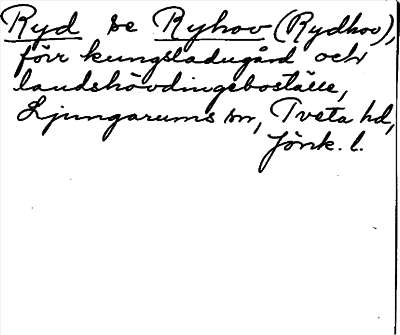 Ryd se Ryhov (Rydhov),
förr kungsladugård och
landshövdingeboställe,
Ljungarums sn, Tveta hd,
Jönk. l.